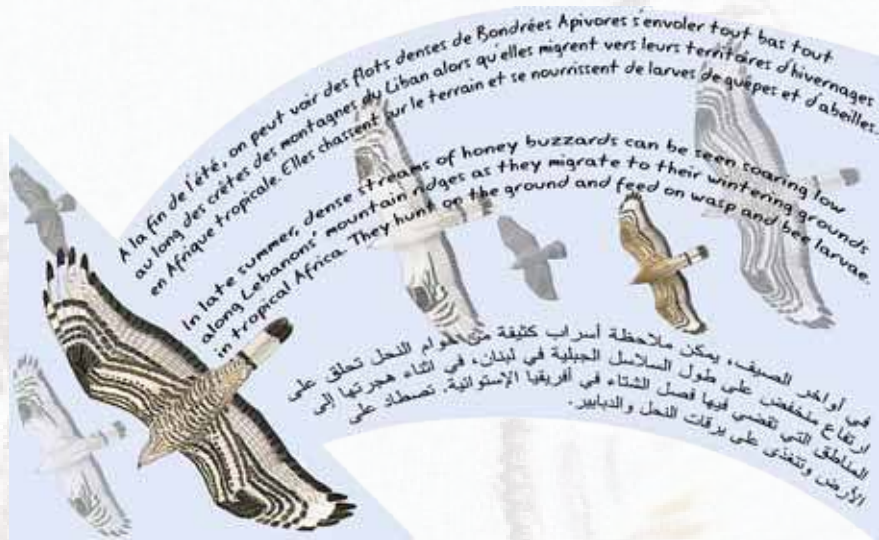 A la fin de l'été, on peut voir des flots denses de Bondrées Apivores s'envoler tout bas tout
au long des crêtes des montagnes du Liban alors qu'elles migrent vers leurs territoires d'hivernages
en Afrique tropicale. Elles chassent sur le terrain et se nourrissent de larves de guêpes et d'abeilles.
In late summer, dense streams of honey buzzards can be seen soaring low
along Lebanons' mountain ridges as they migrate to their wintering grounds
in tropical Africa. They hunt on the ground and feed on wasp and bee larvae.
في أواخر الصيف، يمكن ملاحظة أسراب كثيفة من حوام النحل تحلق على
ارتفاع منخفض على طول السلاسل الجبلية في لبنان، في اثناء هجرتها إلى
المناطق التي تقضي فيها فصل الشتاء في أفريقيا الإستوائية. تصطاد على
الأرض وتتغذى على يرقات النحل والدبابير.